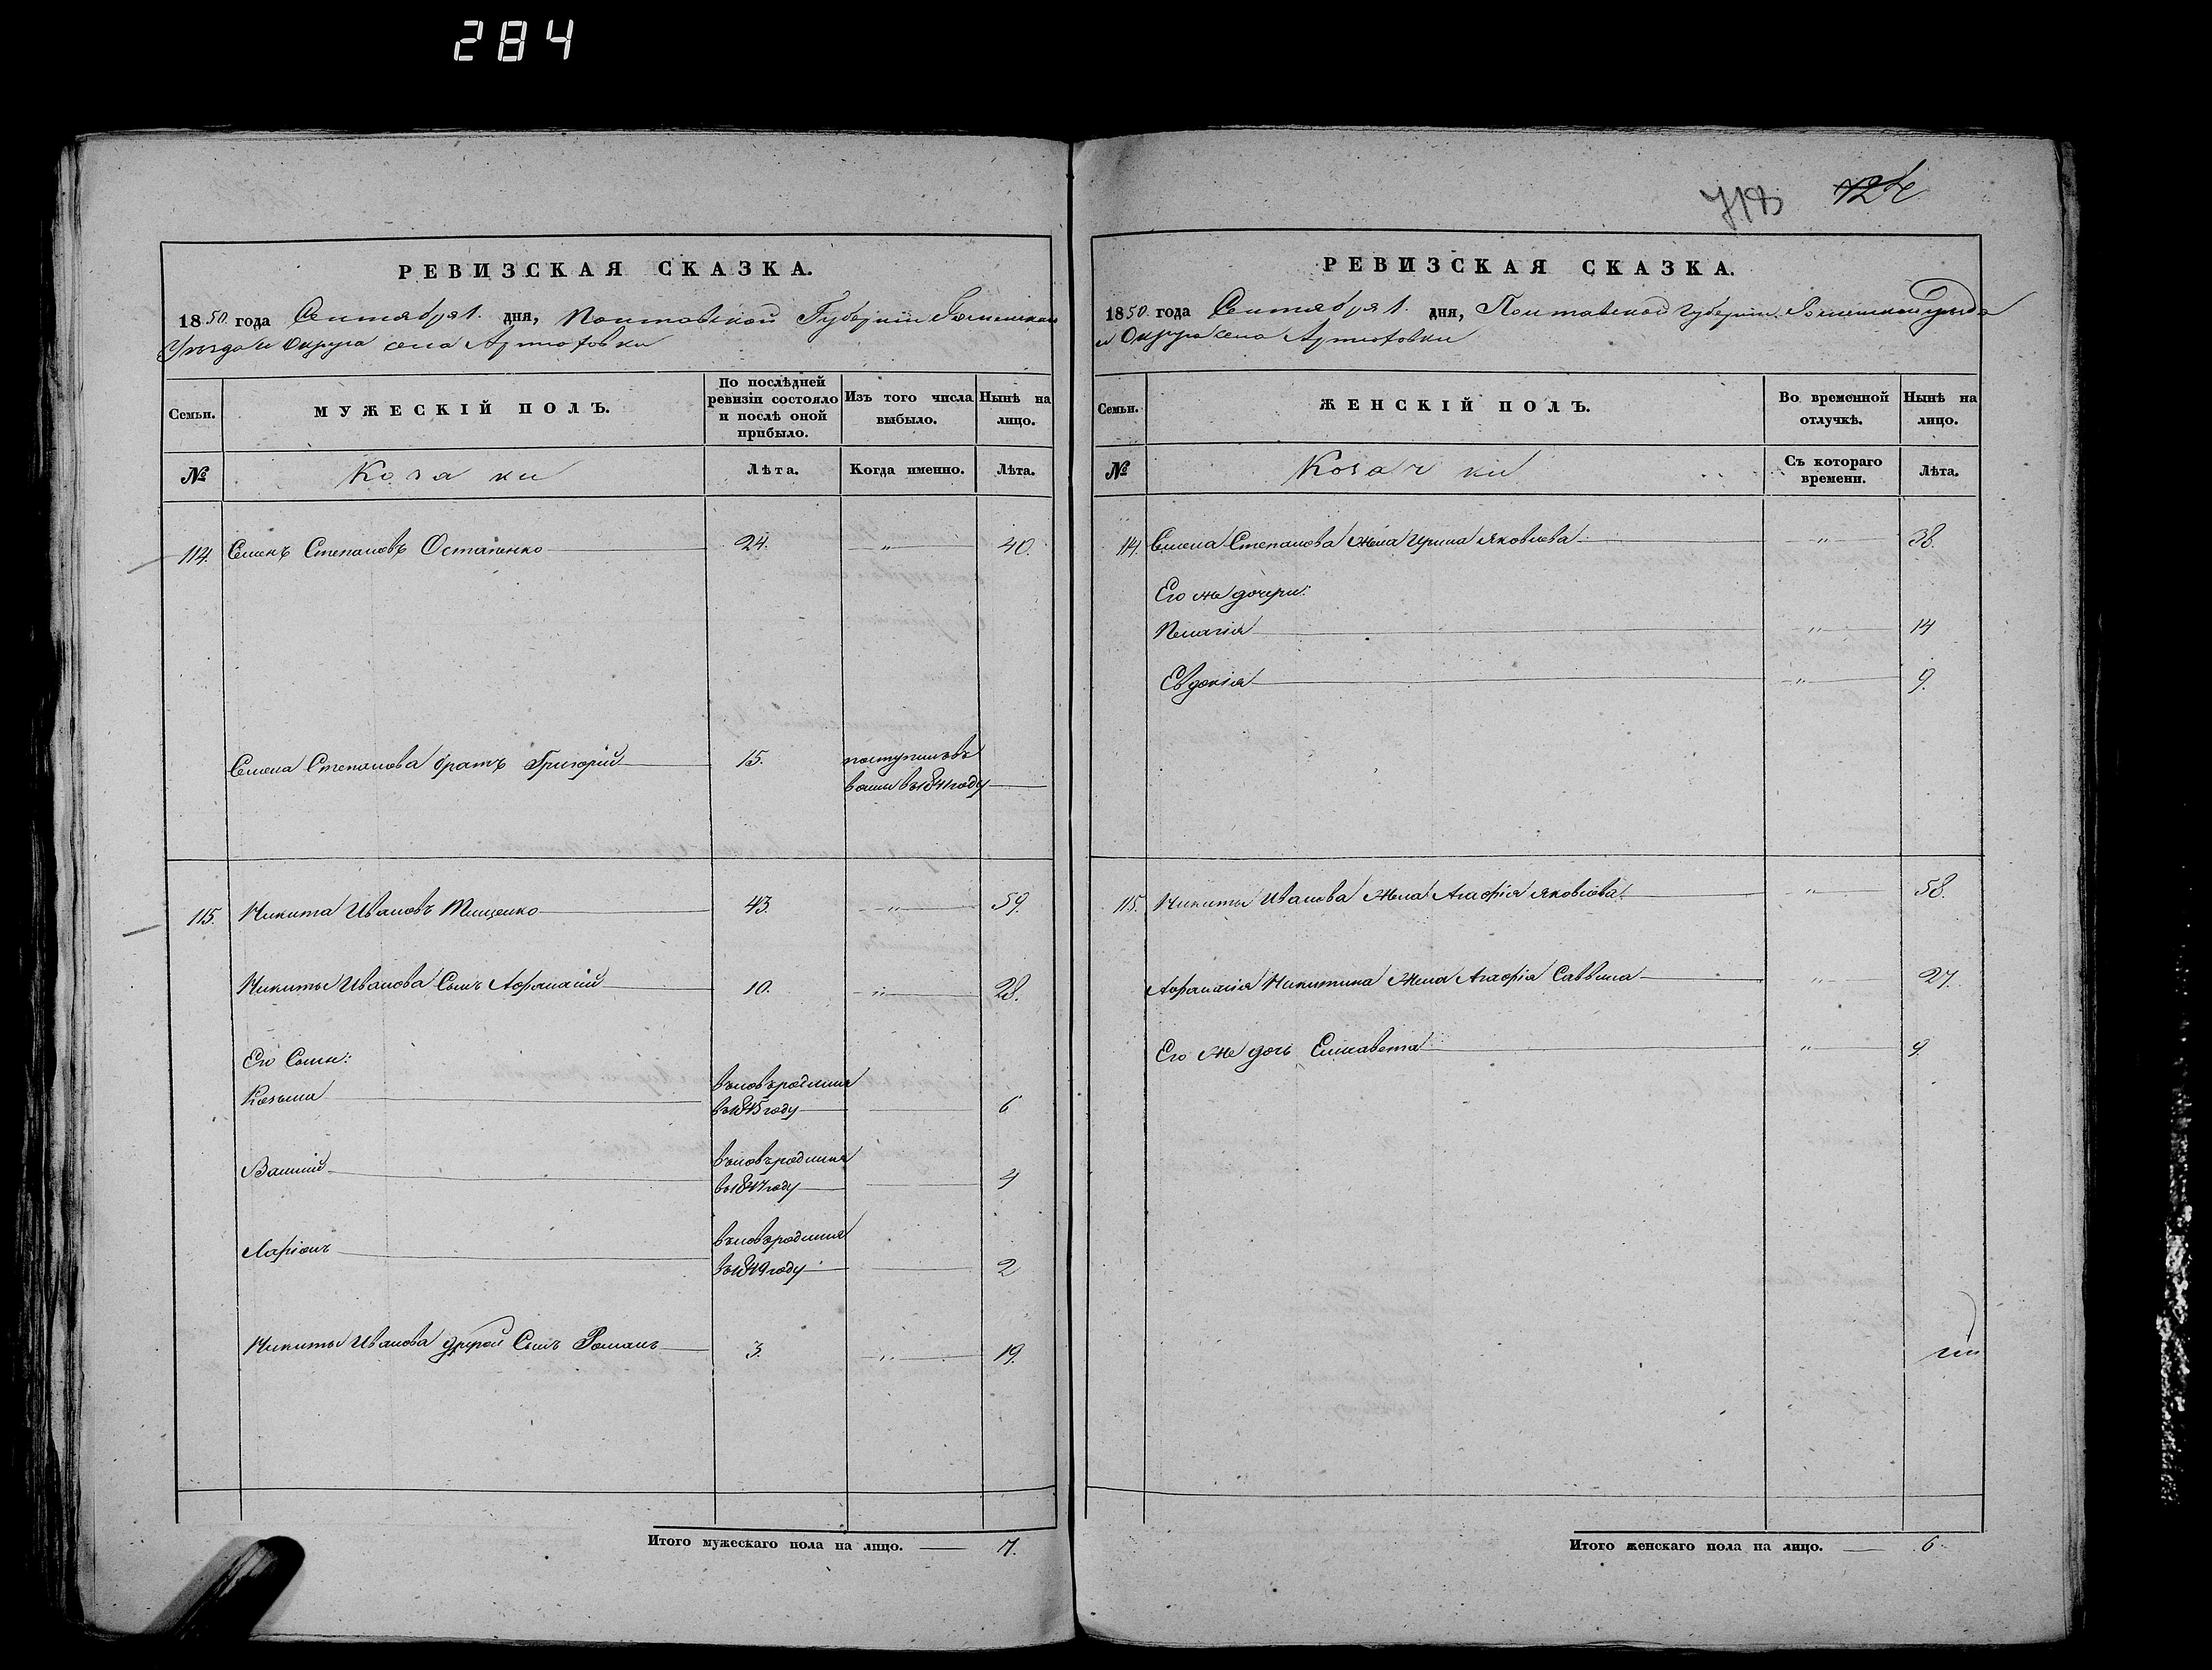 284
718 124
РЕВИЗСКАЯ СКАЗКА.
1850. года Сентября 1. дня, Полтавской Губерніи Роменскаго
Уѣзда и Округа села Артюховки
Семьи.
МУЖЕСКІЙ ПОЛЪ.
По послѣдней ревизіи состояло и послѣ оной прибыло.
Изъ того числа выбыло.
Нынѣ на лицо.
№
Козаки
Лѣта.
Когда именно.
Лѣта.
114. Семенъ Степановъ Остапенко 24. „ 40.
Семена Степанова братъ Григорій 15. поступилъ въ
въ 1841 году
115. Никита Ивановъ Тищенко 43. „ 59.
Никиты Иванова Сынъ Афанасій 10. „ 28.
Его Сыны:
Козьма вновърожденъ
въ 1845 году 6
Василій вновърожденъ
въ 1847 году 4
Ларіонъ вновърожденъ
въ 1849 году 2
Никиты Иванова другой Сынъ Романъ 3. „ 19.
Итого мужескаго пола на лицо. 7.
РЕВИЗСКАЯ СКАЗКА.
1850. года Сентября 1. дня, Полтавской Губерніи Роменскаго уѣзда
и Округа села Артюховки
Семьи.
ЖЕНСКІЙ ПОЛЪ.
Во временной отлучкѣ.
Нынѣ на лицо.
№
Козачки
Съ котораго времени.
Лѣта.
114. Семена Степанова жена Ирина Яковлева „ 38.
Его же дочери:
Пелагія „ 14
Евдокія „ 9.
115. Никиты Иванова Жена Агафія Яковлева „ 58.
Афанасія Никитина Жена Агафія Саввина „ 27.
Его же дочь Елисавета „ 9.
Итого женскаго пола на лицо. 6